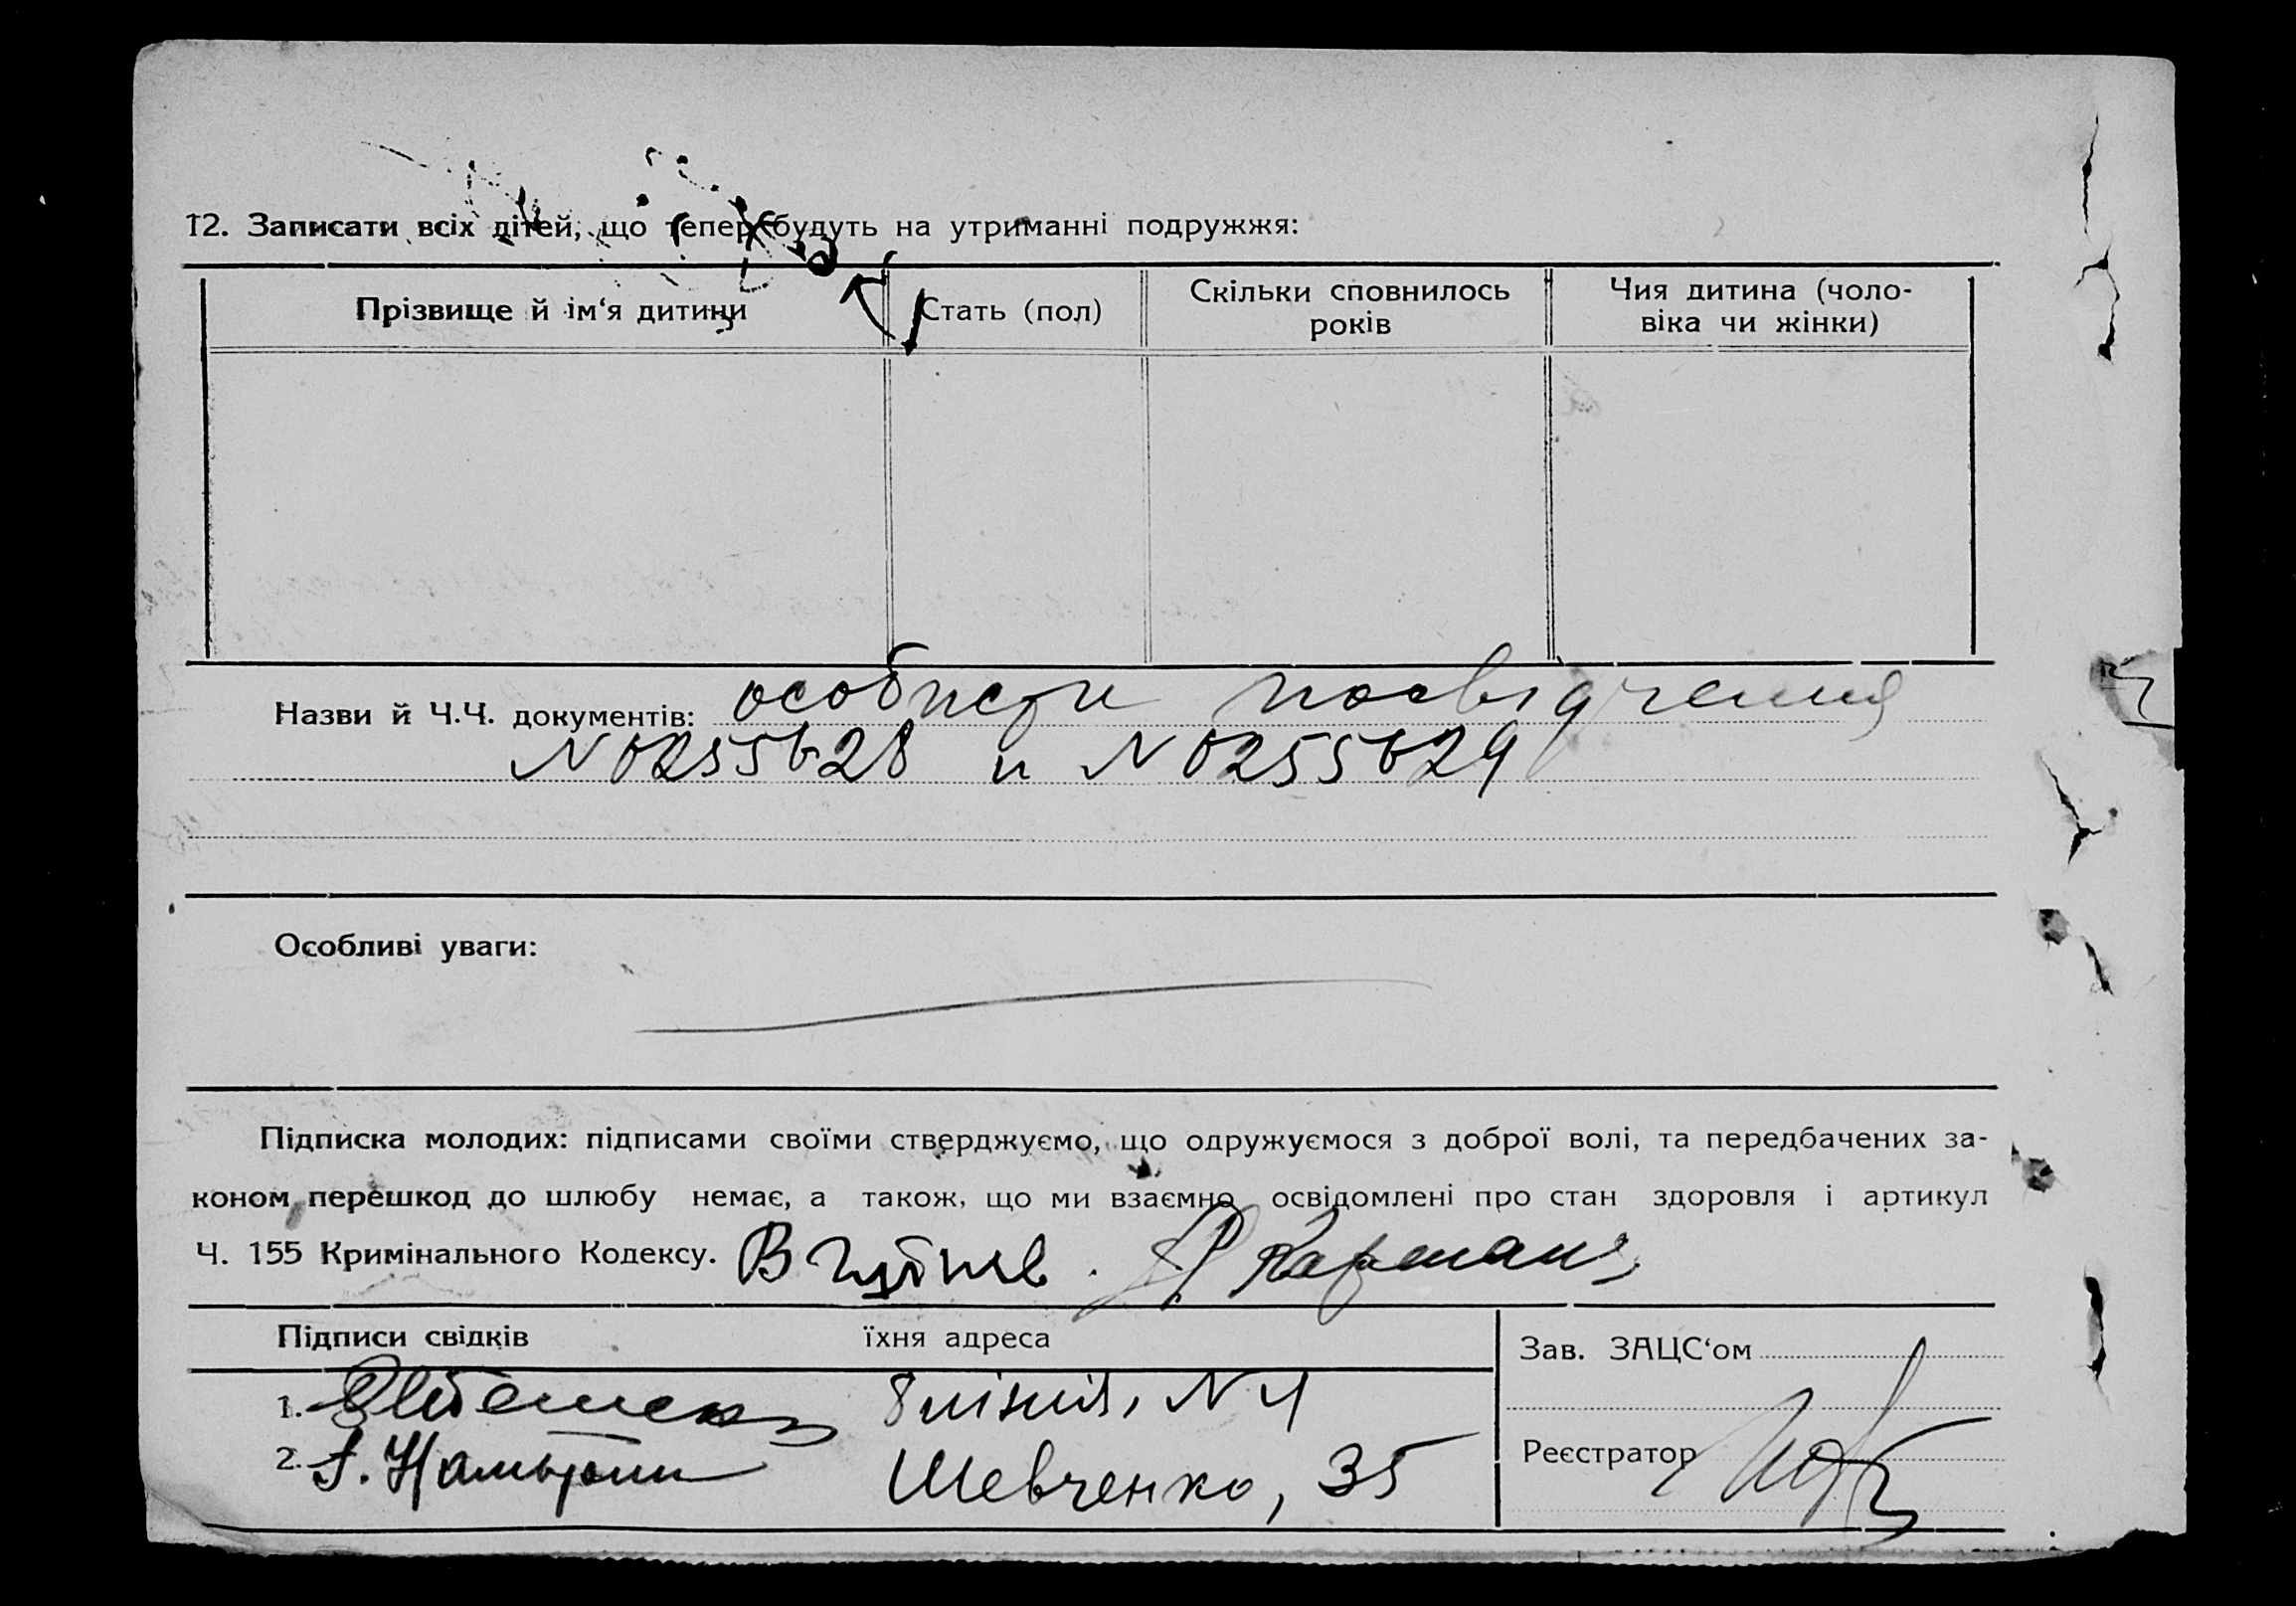 12. Записати всіх дітей, що тепер будуть на утриманні подружжя:
Прізвище й ім‘я дитини
Стать (пол)
Скільки сповнилось
років
Чия дитина (чоло-
віка чи жінки)
Назви й Ч.Ч. документів: особисти посвідчення
N 0255628 и N 0255629
Особливі уваги:
Підписка молодих: підписами своїми стверджуємо, що одружуємося з доброї волі, та передбачених за-
коном перешкод до шлюбу немає, а також, що ми взаємно освідомлені про стан здоровля і артикул
Ч. 155 Кримінального Кодексу. В
Підписи свідків
їхня адреса
Зав. ЗАЦС‘ом
1. 8 лінія, N 4
2. Шевченко, 35
Реєстратор